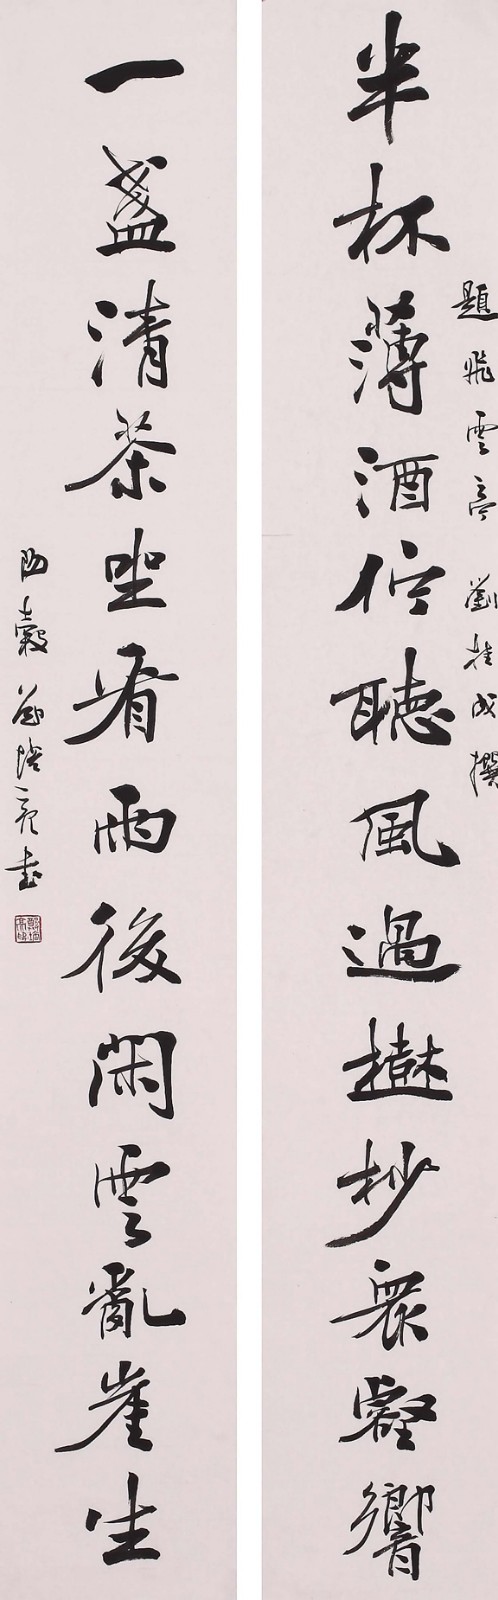 題飛雲亭 劉桂成撰
半杯薄酒佇聽風過樹杪衆壑響
一盞清茶坐看雨後閑雲亂崖生
陽穀 書